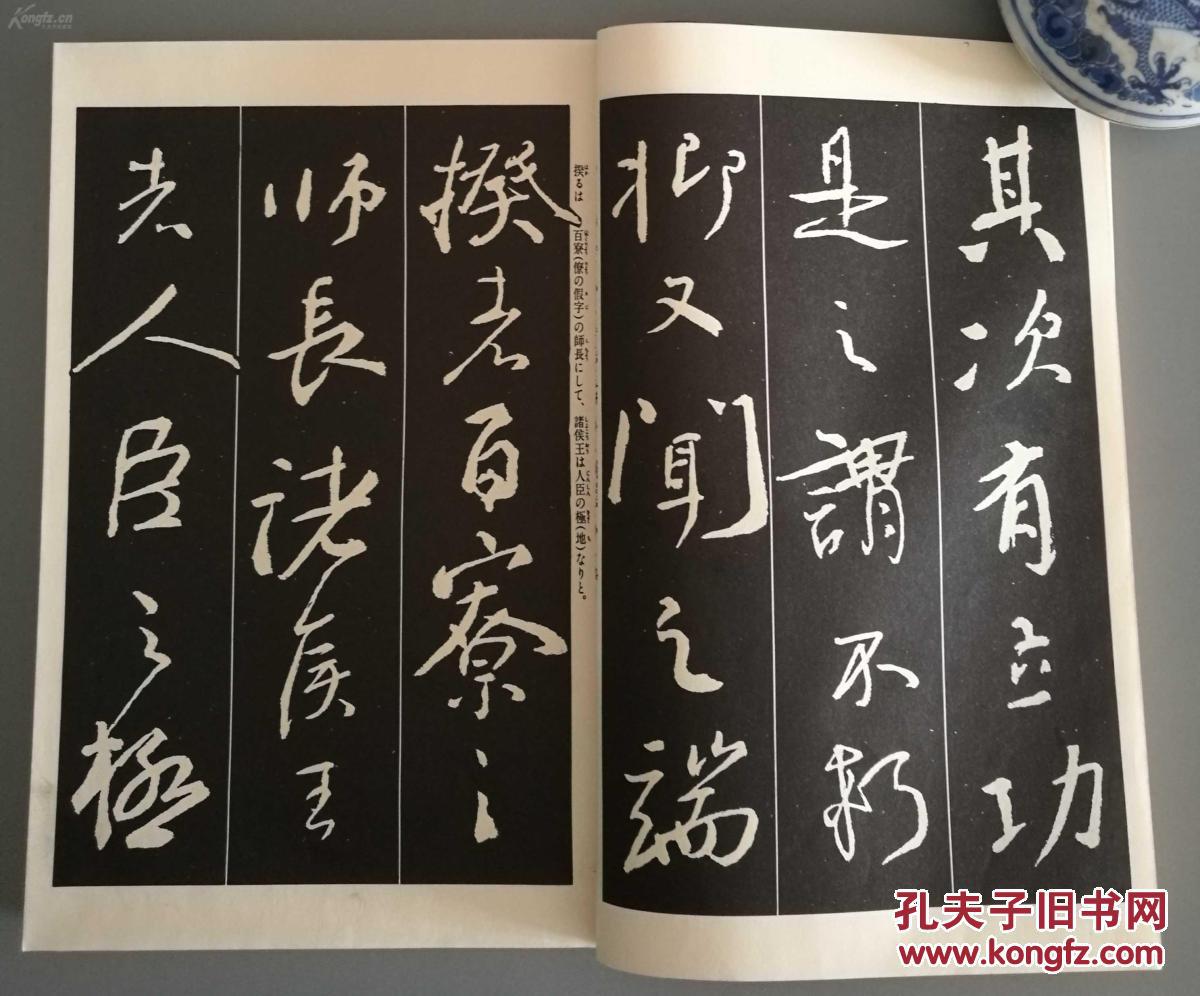 其次有立功
是之謂不朽
抑又聞之端
揆者百寮之
師長諸侯王
者人臣之極
揆るは百寮(僚の假字)の師長にして、諸侯王は人臣の極(地)なりと。
Kongfz.cn
孔夫子旧书网
www.kongfz.com